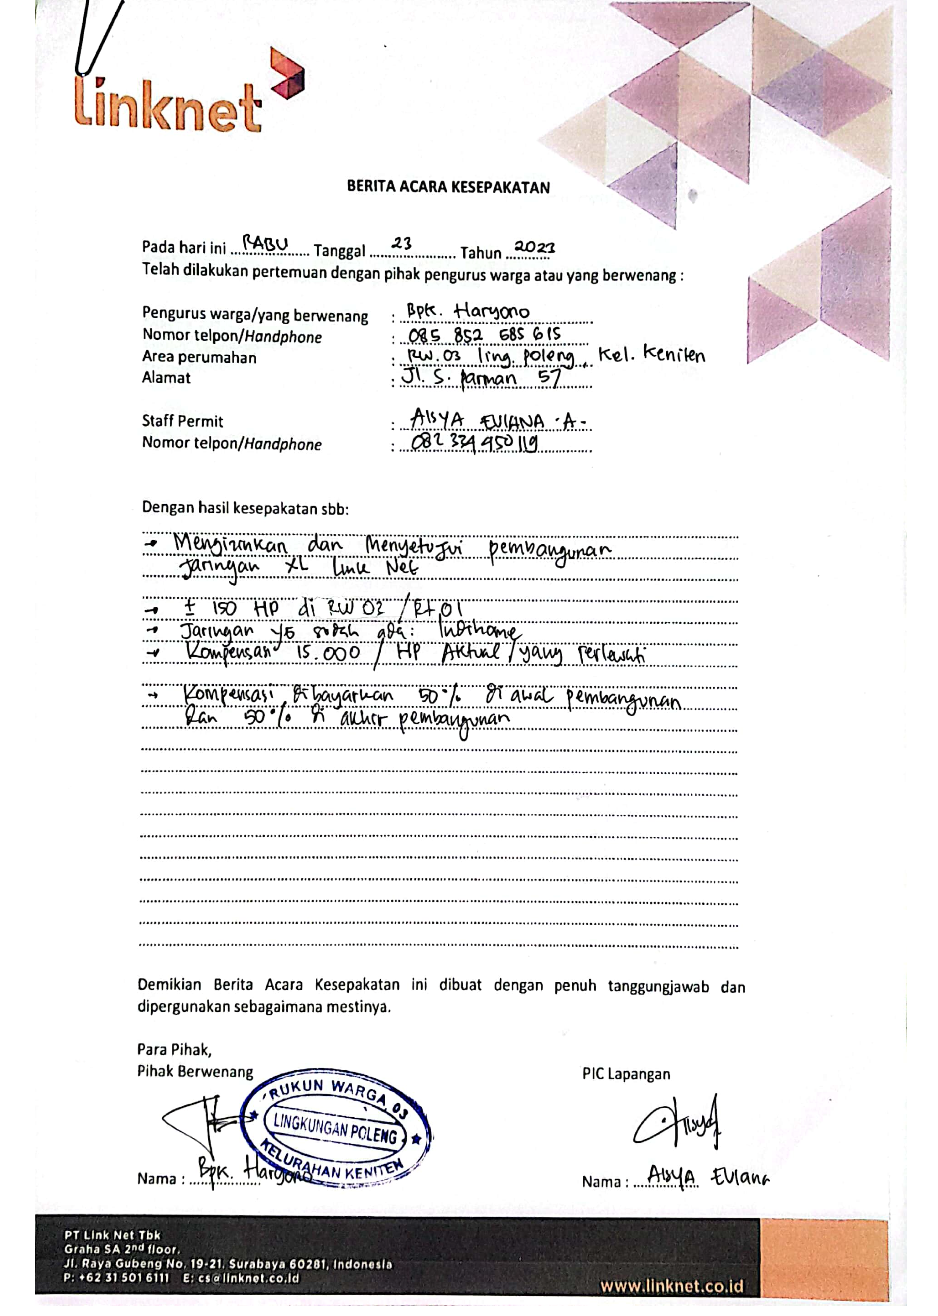 linknet
BERITA ACARA KESEPAKATAN
Pada hari ini ... RABU ... Tanggal ... 23 ... Tahun ... 2023
Telah dilakukan pertemuan dengan pihak pengurus warga atau yang berwenang :
Pengurus warga/yang berwenang : Bpk. Haryono
Nomor telpon/Handphone : 085 852 685 615
Area perumahan : RW. 03 ling. Poleng, Kel. Keniten
Alamat : Jl. S. Parman 57
Staff Permit : AISYA EVIANA -A-
Nomor telpon/Handphone : 082 334 950 119
Dengan hasil kesepakatan sbb:
→ Mengizinkan dan Menyetujui pembangunan
Jaringan XL Link Net
→ ± 150 HP di RW 03 / Rt 01
→ Jaringan yg sudah ada: Indihome
→ Kompensasi 15.000 / HP Aktual / yang terlewati
→ Kompensasi dibayarkan 50% di awal pembangunan
dan 50% di akhir pembangunan
Demikian Berita Acara Kesepakatan ini dibuat dengan penuh tanggungjawab dan
dipergunakan sebagaimana mestinya.
Para Pihak,
Pihak Berwenang
PIC Lapangan
RUKUN WARGA 03
LINGKUNGAN POLENG
KELURAHAN KENITEN
Nama : Bpk. Haryono
Nama : AISYA EVIANA
PT Link Net Tbk
Graha SA 2nd floor,
Jl. Raya Gubeng No. 19-21, Surabaya 60281, Indonesia
P: +62 31 501 6111 E: cs@linknet.co.id
www.linknet.co.id